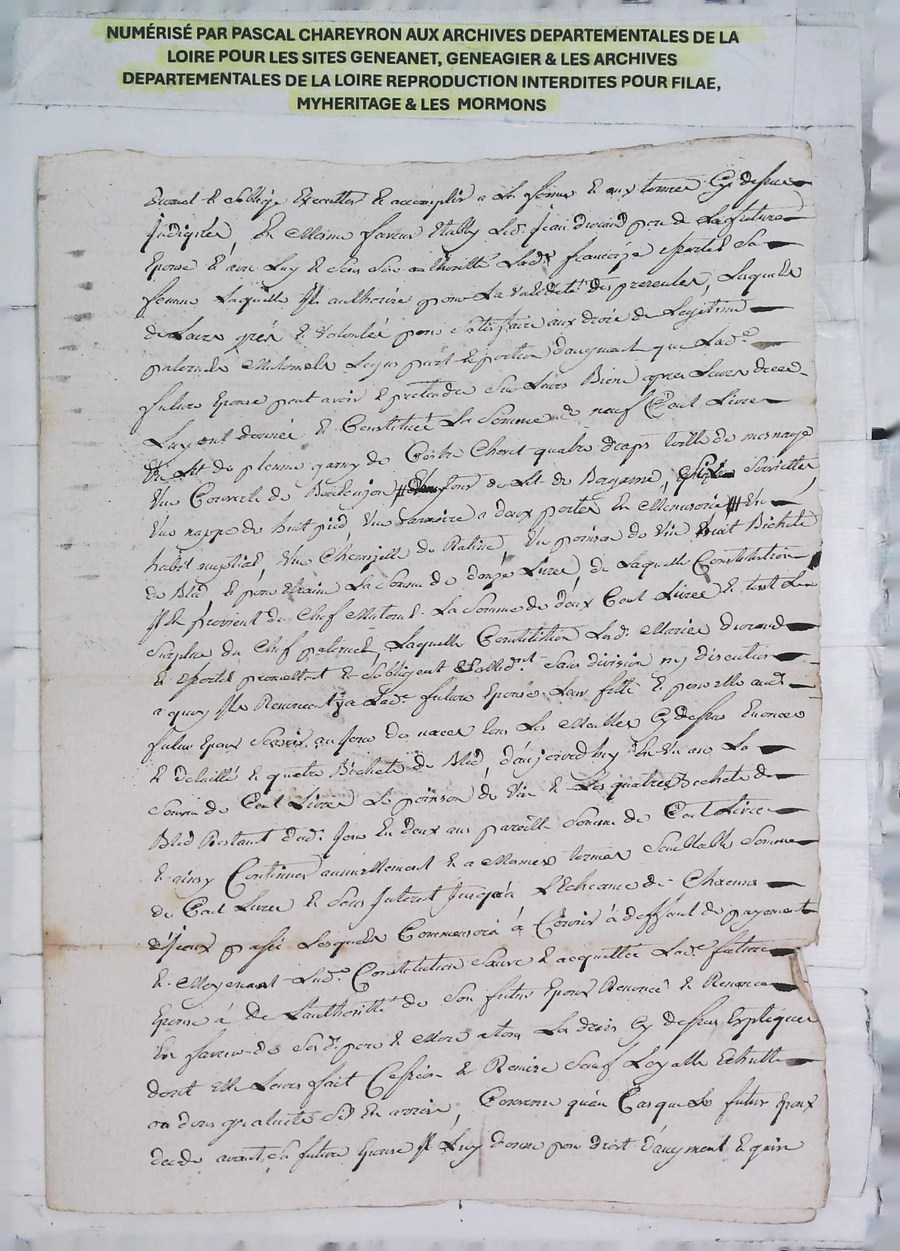 NUMÉRISÉ PAR PASCAL CHAREYRON AUX ARCHIVES DEPARTEMENTALES DE LA
LOIRE POUR LES SITES GENEANET, GENEAGIER & LES ARCHIVES
DEPARTEMENTALES DE LA LOIRE REPRODUCTION INTERDITES POUR FILAE,
MYHERITAGE & LES MORMONS
et accomplir a la forme et aux termes cy dessus
Indiqués, En Mesme faveur Etably Led. Jean durand pere de la future
Epouse et avec Luy et sous son authorité Lad. françoise sportel sa
femme Laquelle Il authorise pour la validité des presentes, Lesquels
de Leurs grés et volontés pour satisfaire aux droits de Legitime
paternels Maternels Legus part et portion d'augment que Lad.
future Epouse peut avoir et pretendre sur Leurs Biens apres Leurs deces
Luy ont donnée et Constituée La Somme de neuf Cent Livres
Lit de plume garny de Coitre Chevet quatre draps toille de mesnage
Une Couverte de tour de Lit de Bergame, serviettes
Une nappe de huit pied, Une armoire a deux portes En Menuserie Un
habit nuptial, Une de Ratine, Un poinson de Vin huit Bichets
de Bled, et pour Etraine La Somme de douze Livres, de Laquelle Constitution
Il provient du Chef Maternel La Somme de deux Cent Livres et tout Le
Surplus du Chef paternel, Laquelle Constitution Lesd. Mariés durand
et sportel promettent et s'obligent sollid.nt sans division ny discution
a quoy Ils Renoncent a Lad. future Epouse Leur fille et pour elle aud.
futur Epoux Scavoir au Jour de noces tous Les Meubles Cy dessus Enoncés
et detaillé et quatre Bichets de Bled, d'aujourd'huy En Un an La
Somme de Cent Livres Le poinson de Vin et Les quatres Bichets de
Bled Restant dud. Jour En deux ans pareille Somme de Cent Livres
et ainsy Continuer annuellement et a Mesmes termes Semblable Somme
de Cent Livres et sans Interet Jusqu'a L'Echeance de Chacuns
d'Iceux passé Lesquels Commencera à Courir à deffaut de payement
et Moyenant Lad. Constitution sauve et acquittée Lad. future
Epouse à de L'authorité de son futur Epoux Renoncé et Renonce
En faveur de Sesd. pere et Mere a tous Les droits Cy dessus Expliqués
dont Elle Leurs fait Cession et Remise sauf Loyalle Echutte
ou dons gratuits Sil En arrive, Convenu qu'au Cas que Le futur Epoux
decede avant sa future Epouse Il Luy donne pour Droit d'augment Le quint